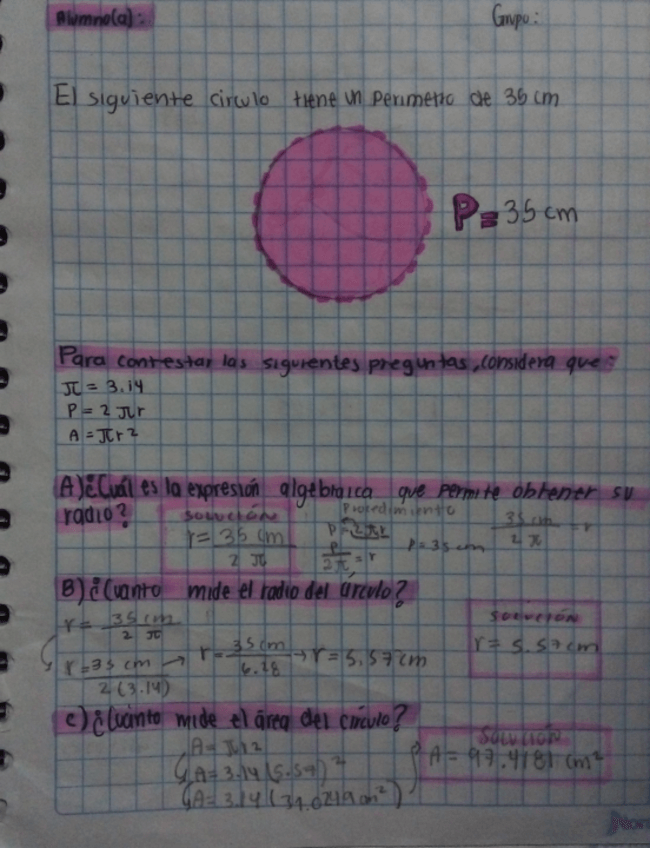 Alumno(a):
Grupo:
El siguiente circulo tiene un perimetro de 35 cm
P = 35 cm
Para contestar las siguientes preguntas, considera que:
π = 3.14
P = 2 πr
A = πr2
A) ¿Cuál es la expresión algebraica que permite obtener su
radio?
solución
r = 35 cm / 2 π
Procedimiento
P = 2πr
P / 2π = r
P = 35 cm
35 cm / 2 π = r
B) ¿Cuanto mide el radio del círculo?
r = 35 cm / 2 π
r = 35 cm / 2(3.14) → r = 35 cm / 6.28 → r = 5.57 cm
solución
r = 5.57 cm
C) ¿Cuánto mide el área del círculo?
A = πr2
A = 3.14 (5.57)²
A = 3.14 (31.0249 cm²)
Solución
A = 97.4181 cm²